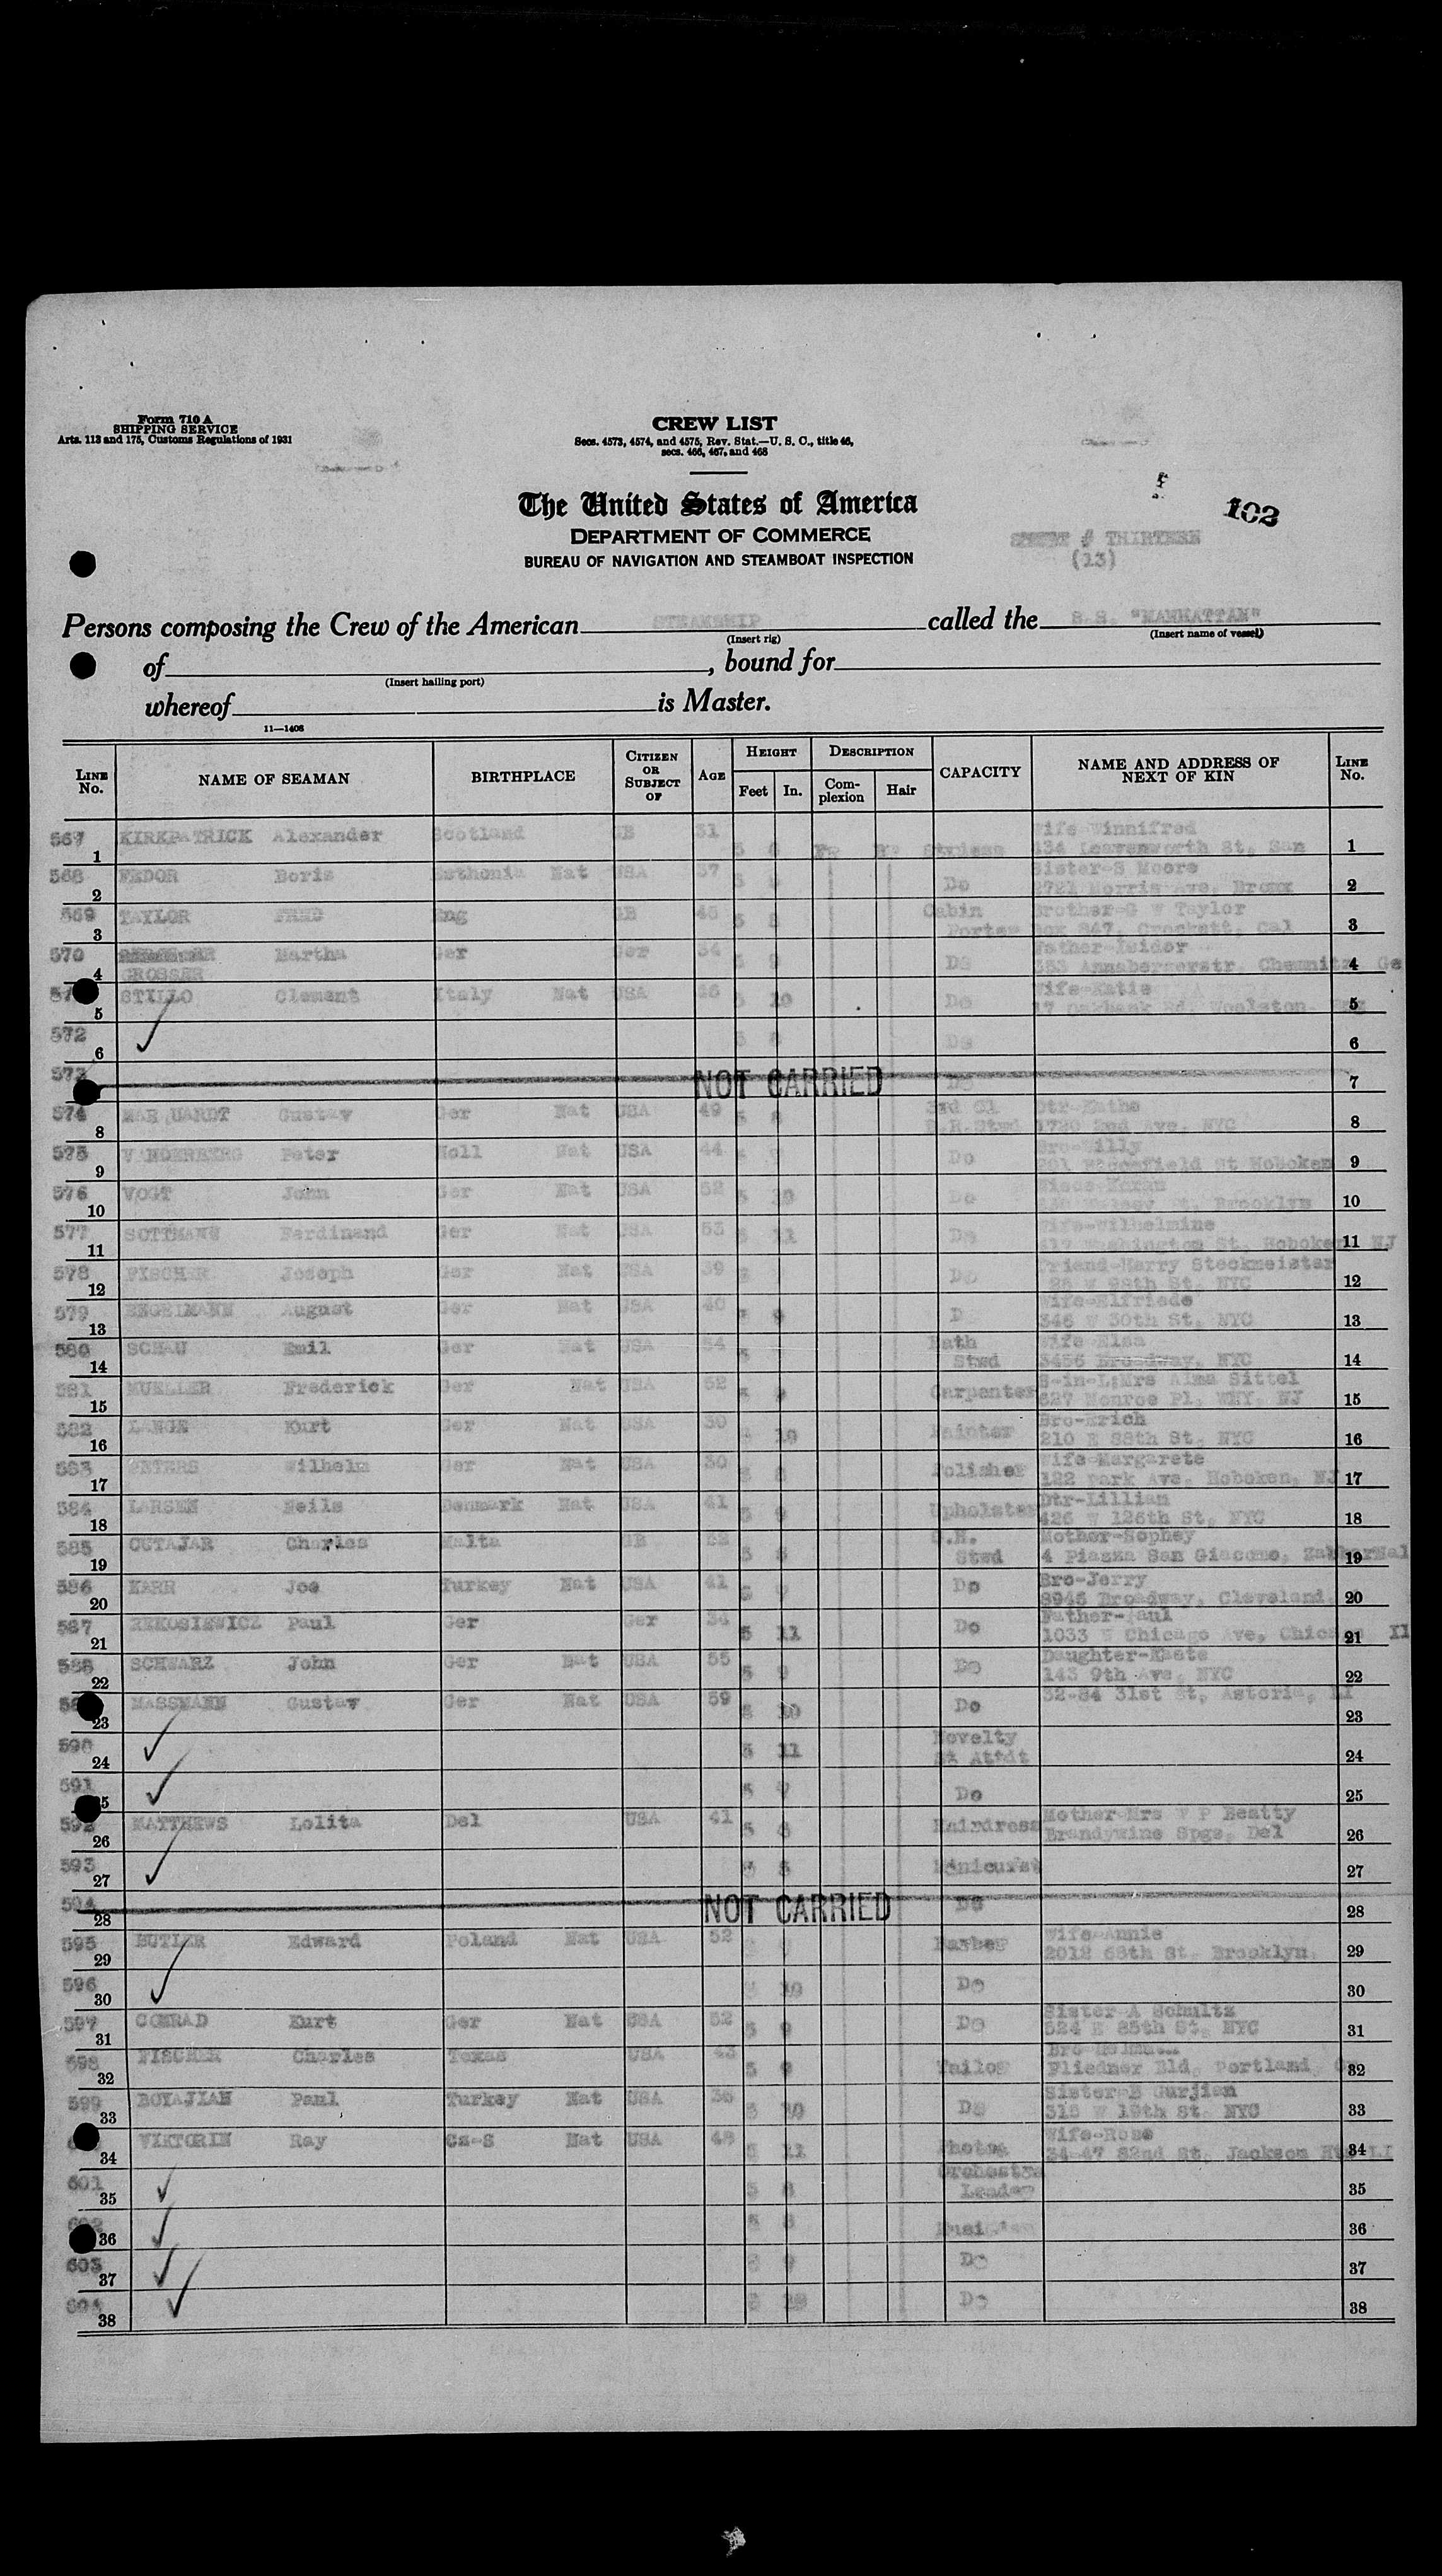 Form 710 A
SHIPPING SERVICE
Arts. 113 and 175, Customs Regulations of 1931
CREW LIST
Secs. 4573, 4574, and 4575, Rev. Stat.—U. S. C., title 46,
secs. 466, 467, and 468
The United States of America
DEPARTMENT OF COMMERCE
BUREAU OF NAVIGATION AND STEAMBOAT INSPECTION
102
SHEET # THIRTEEN
(13)
Persons composing the Crew of the American STEAMSHIP called the S.S. "MANHATTAN"
(Insert rig) (Insert name of vessel)
of , bound for
(Insert hailing port)
whereof is Master.
11—1406
LINE No. NAME OF SEAMAN BIRTHPLACE CITIZEN OR SUBJECT OF AGE HEIGHT Feet In. DESCRIPTION Complexion Hair CAPACITY NAME AND ADDRESS OF NEXT OF KIN LINE No.
567 1 KIRKPATRICK Alexander Scotland GB 31 5 Wife-Winnifred 134 Leavenworth St, San 1
568 2 FEDOR Boris Esthonia Nat USA 37 5 Do Sister-S Moore 2721 Morris Ave, Bronx 2
569 3 TAYLOR FRED Eng GB 45 5 8 Cabin Porter Brother-G W Taylor Box 847, Crockett, Cal 3
570 4 GROSSER Martha Ger Ger 34 5 Do Father-Isidor 353 Annabergerstr, Chemnitz, Ge 4
STILLO Clement Italy Nat USA 46 5 10 Do Wife-Katie 17 Oakbank Rd, Woolston 5
572 6 5 8 Do 6
573 NOT CARRIED Do 7
574 8 MARQUARDT Gustav Ger Nat USA 49 5 8 3rd Cl Stwd 1720 2nd Ave, NYC 8
575 9 VANDERBERG Peter Holl Nat USA 44 5 Do Bro-Willy St Hoboken 9
576 10 VOGT John Ger Nat USA 52 5 10 Do Brooklyn 10
577 11 SOTTMANN Ferdinand Ger Nat USA 53 5 11 Do Wife-Wilhelmine 417 Washington St, Hoboken NJ 11
578 12 FISCHER Joseph Ger Nat USA 39 Do Friend-Harry Steckmeister 25 W 98th St. NYC 12
579 13 ENGELMANN August Ger Nat USA 40 Wife-Elfriede 346 W 30th St, NYC 13
580 14 SCHAU Emil Ger Nat USA 54 5 Bath Stwd Wife-Elsa 3456 Broadway, NYC 14
581 15 MUELLER Frederick Ger Nat USA 52 5 Carpenter S-in-L:Mrs Alma Sittel 627 Monroe Pl, WNY, NJ 15
582 16 LANGE Kurt Ger Nat USA 30 10 Painter Bro-Erich 210 E 88th St, NYC 16
583 17 PETERS Wilhelm Ger Nat USA 30 5 8 Polisher Wife-Margarete 122 Park Ave, Hoboken, NJ 17
584 18 LARSEN Neils Denmark Nat USA 41 5 9 Upholster Dtr-Lillian 426 W 126th St, NYC 18
585 19 CUTAJAR Charles Malta GB 5 Stwd Mother-Sophey 4 Piazza San Giacomo, 19
586 20 KARR Joe Turkey Nat USA 41 5 Do Bro-Jerry 8945 Broadway, Cleveland 20
587 21 REKOSIEWICZ Paul Ger Ger 34 5 11 Do Father-Paul 1033 W Chicago Ave, 21
588 22 SCHWARZ John Ger Nat USA 55 5 9 Do 143 9th Ave, NYC 22
23 MASSMANN Gustav Ger Nat USA 59 5 10 Do 32-84 31st St, Astoria, LI 23
590 24 5 11 Novelty St Attdt 24
591 5 Do 25
592 26 MATTHEWS Lolita Del USA 41 5 Hairdress Mother-Mrs V P Beatty Brandywine Spgs, Del 26
593 27 Manicurst 27
594 28 NOT CARRIED Do 28
595 29 BUTLER Edward Poland Nat USA 52 Barber Wife-Annie 2012 68th St, Brooklyn, 29
596 30 10 Do 30
597 31 CONRAD Kurt Ger Nat USA 52 5 9 Do Sister-A Schultz 524 E 85th St, NYC 31
598 32 FISCHER Charles Texas USA 43 5 9 Tailor Fliedner Bld, Portland 32
599 33 BOYAJIAN Paul Turkey Nat USA 36 5 10 Do Sister-B Gurjian 315 W 19th St, NYC 33
34 VIKTORIN Ray Cz-S Nat USA 48 5 11 Photog Wife-Rose 34-47 82nd St, Jackson Hts LI 34
601 35 5 8 Orchestra Leader 35
602 36 5 8 Musician 36
603 37 9 Do 37
604 38 Do 38